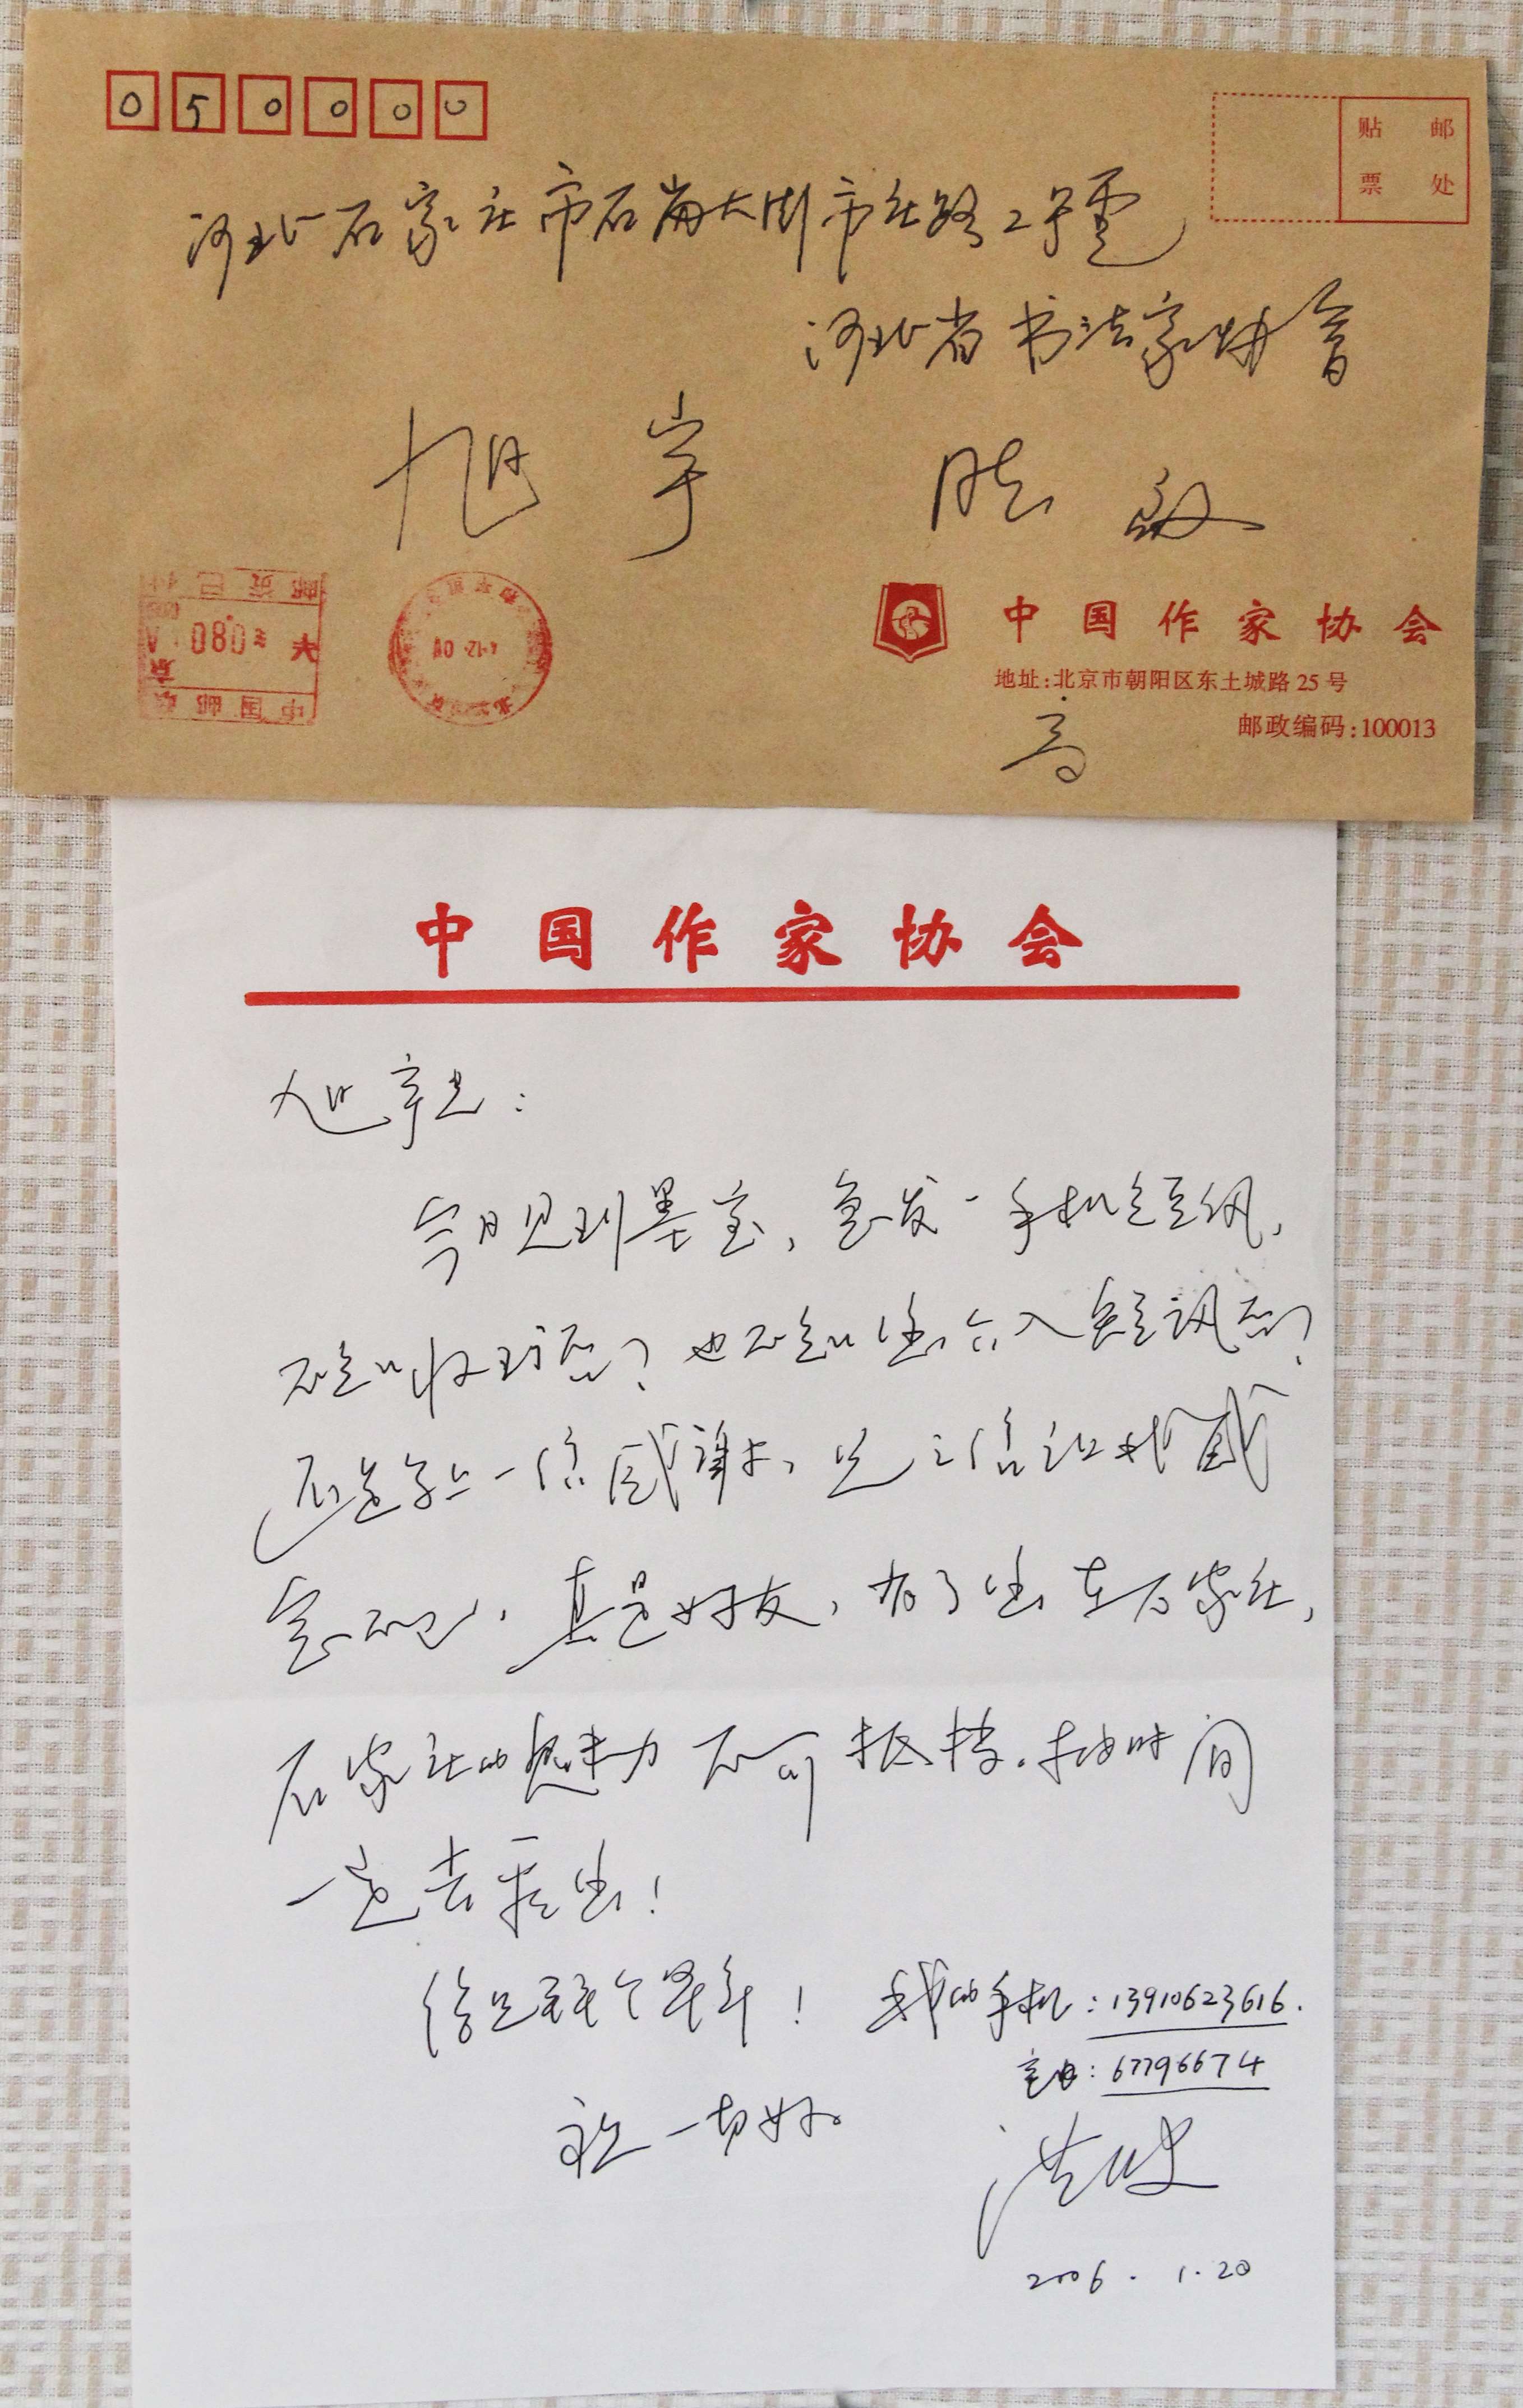 050000
贴 邮
票 处
河北石家庄市石岗大街市庄路2号
河北省书法家协会
旭宇 启
中国作家协会
地址:北京市朝阳区东土城路25号
邮政编码:100013
高
中国作家协会
旭宇兄:
今日见到墨宝,急发一手机短讯,
不知收到否?也不知您会不会短讯否?
还是写上一信感谢,兄之信让我感
真是好友,为了您在石家庄,
石家庄的魅力不可抵挡。抽时间
一定去看您!
给兄拜个早年! 我的手机:13910623616.
宅电:67796674
祝一切好。
洪波
2006.1.20